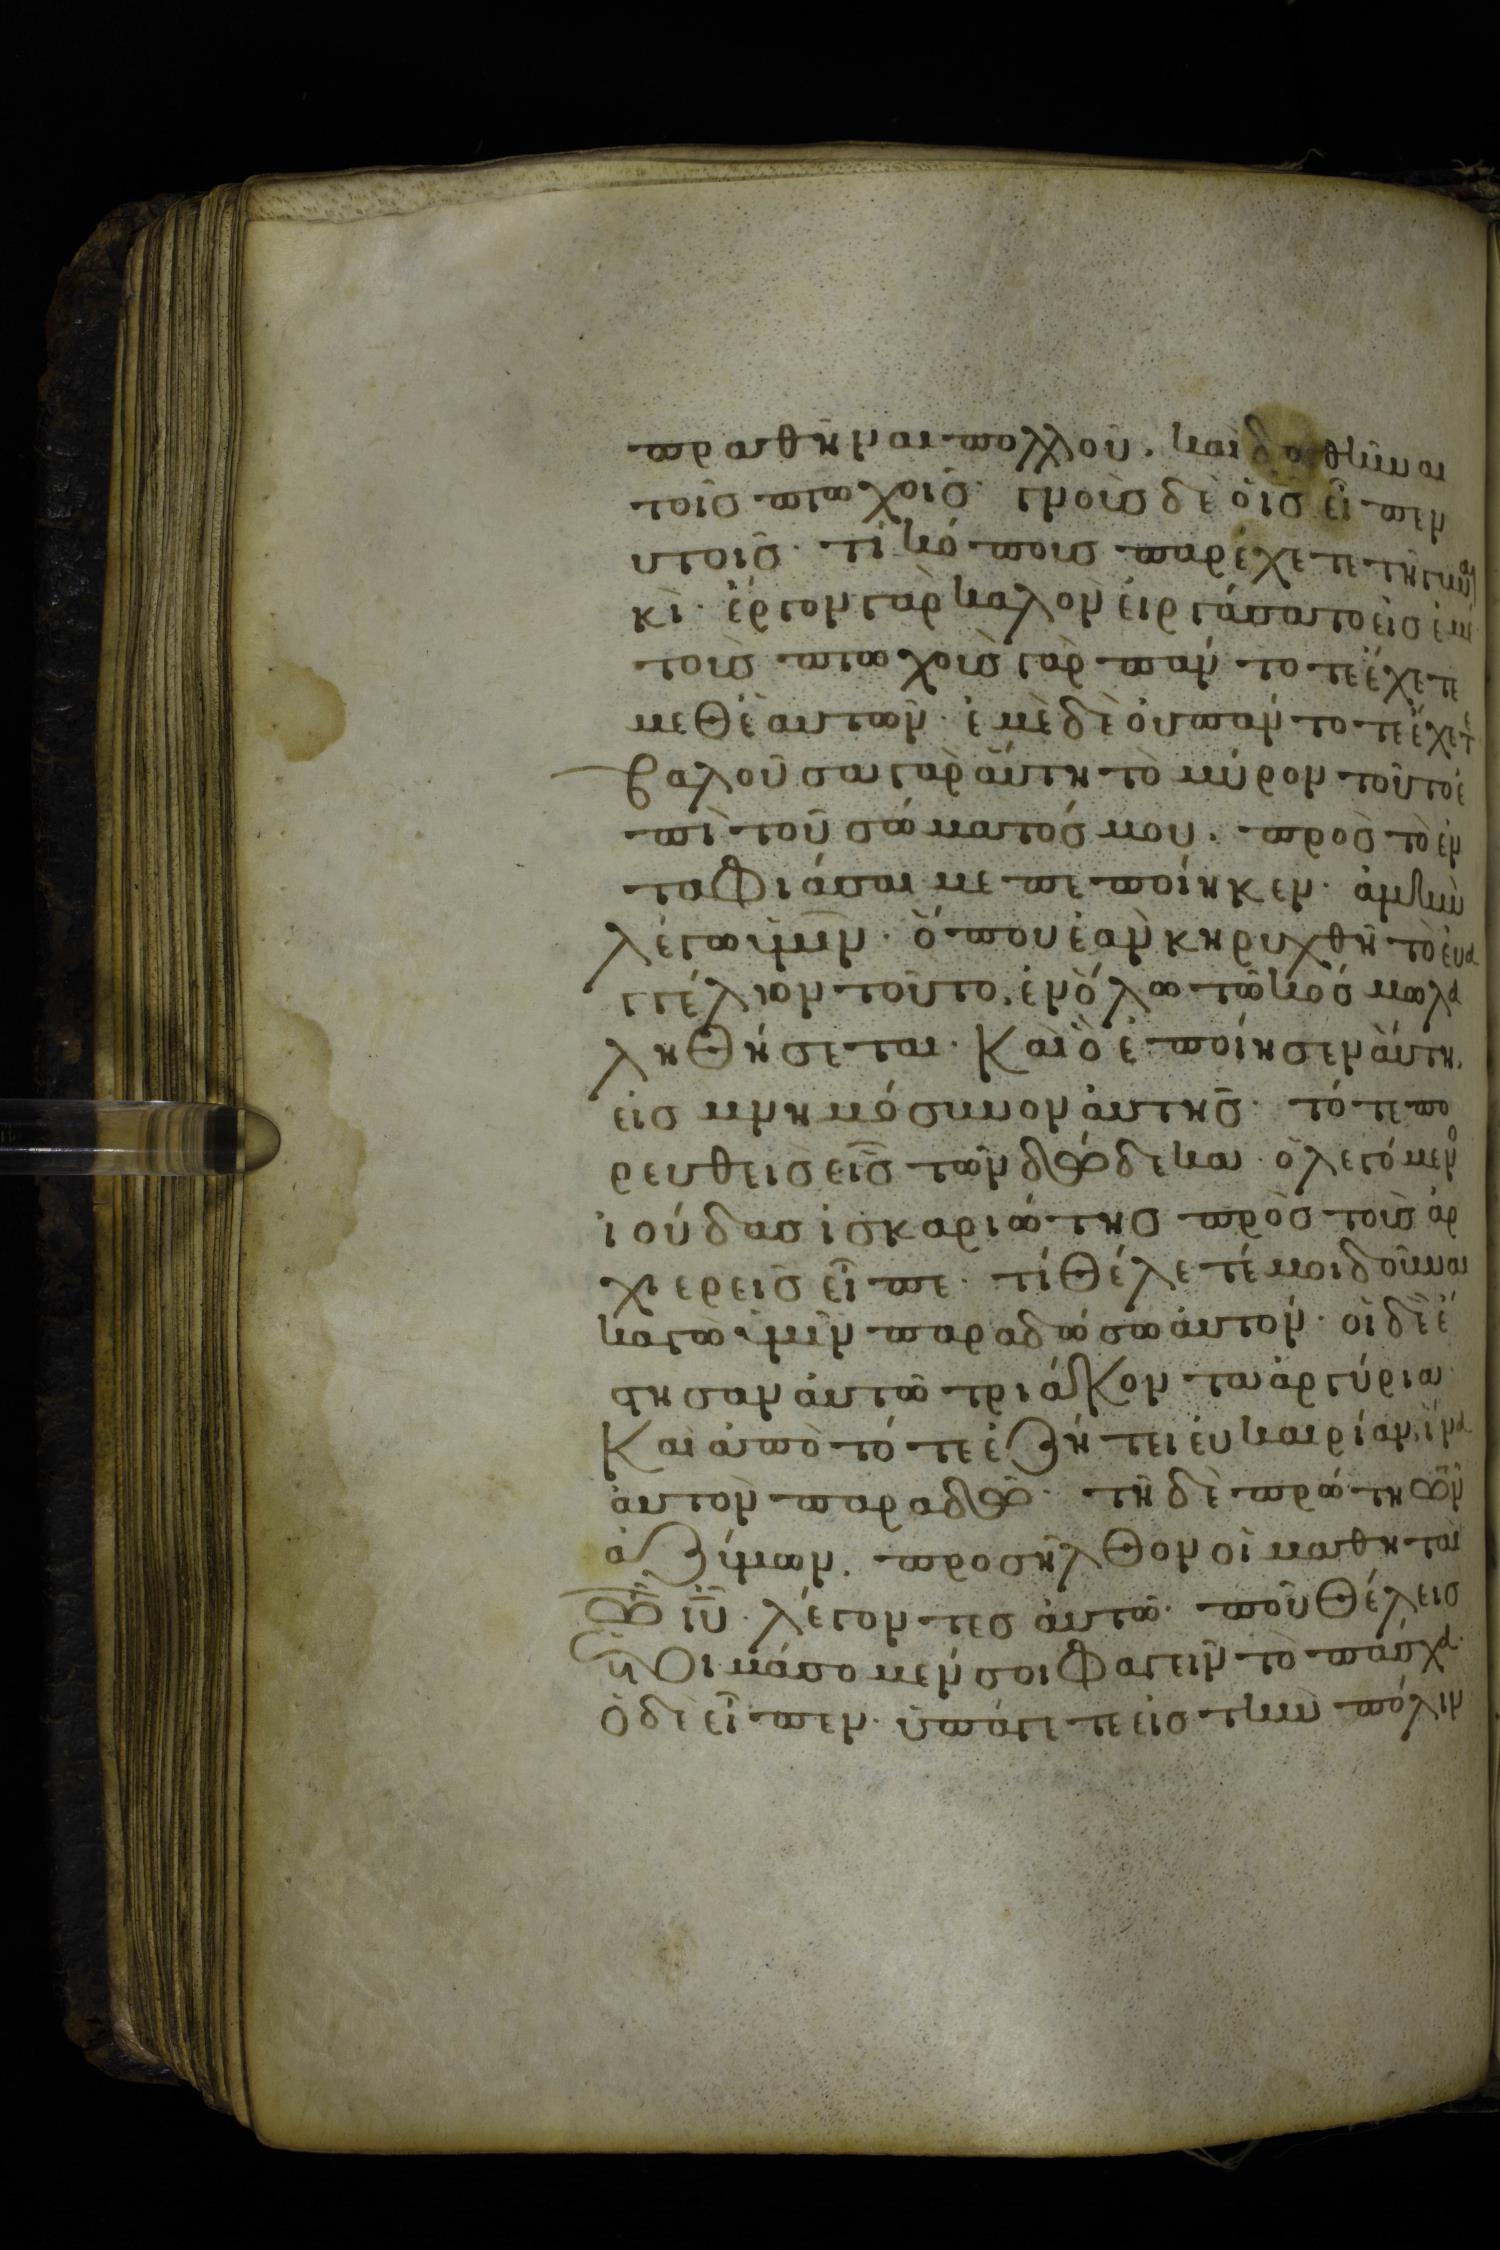 πραθῆναι πολλοῦ. καὶ δοθῆναι
τοῖς πτωχοῖς. γνοὺς δὲ ὁ ι̅ς̅ εἶπεν
αὐτοῖς. τί κόπους παρέχετε τῆ γυναι
κί. ἔργον γὰρ καλὸν εἰργάσατο εἰς ἐμέ
τοὺς πτωχοὺς γὰρ πάντοτε ἔχετε
μεθ' ἑαυτῶν. ἐμὲ δὲ οὐ πάντοτε ἔχετε
βαλοῦσα γὰρ αὕτη τὸ μύρον τοῦτο ἐ
πὶ τοῦ σώματός μου. πρὸς τὸ ἐν
ταφιάσαι με πεποίηκεν. ἀμὴν
λέγω ὑμῖν. ὅπου ἐὰν κηρυχθῆ τὸ εὐα
γγέλιον τοῦτο. ἐν ὅλω τῶ κόσμω λα
ληθήσεται. Καὶ ὃ ἐποίησεν αὕτη.
εἰς μνημόσυνον αὐτῆς. τότε πο
ρευθεὶς εἷς τῶν δώδεκα. ὁ λεγόμενος
ἰούδας ἰσκαριώτης πρὸς τοὺς ἀρ
χιερεῖς εἶπε. τί θέλετέ μοι δοῦναι
κἀγὼ ὑμῖν παραδώσω αὐτόν. οἱ δὲ ἔ
στησαν αὐτῶ τριάκοντα ἀργύρια.
Καὶ ἀπὸ τότε ἐζήτει εὐκαιρίαν ἵνα
αὐτὸν παραδῶ. τῆ δὲ πρώτη τῶν
ἀζύμων. προσῆλθον οἱ μαθηταὶ
τῶ ι̅υ̅. λέγοντες αὐτῶ. ποῦ θέλεις
ἑτοιμάσομέν σοι φαγεῖν τὸ πάσχα.
Ὁ δὲ εἶπεν. ὑπάγετε εἰς τὴν πόλιν